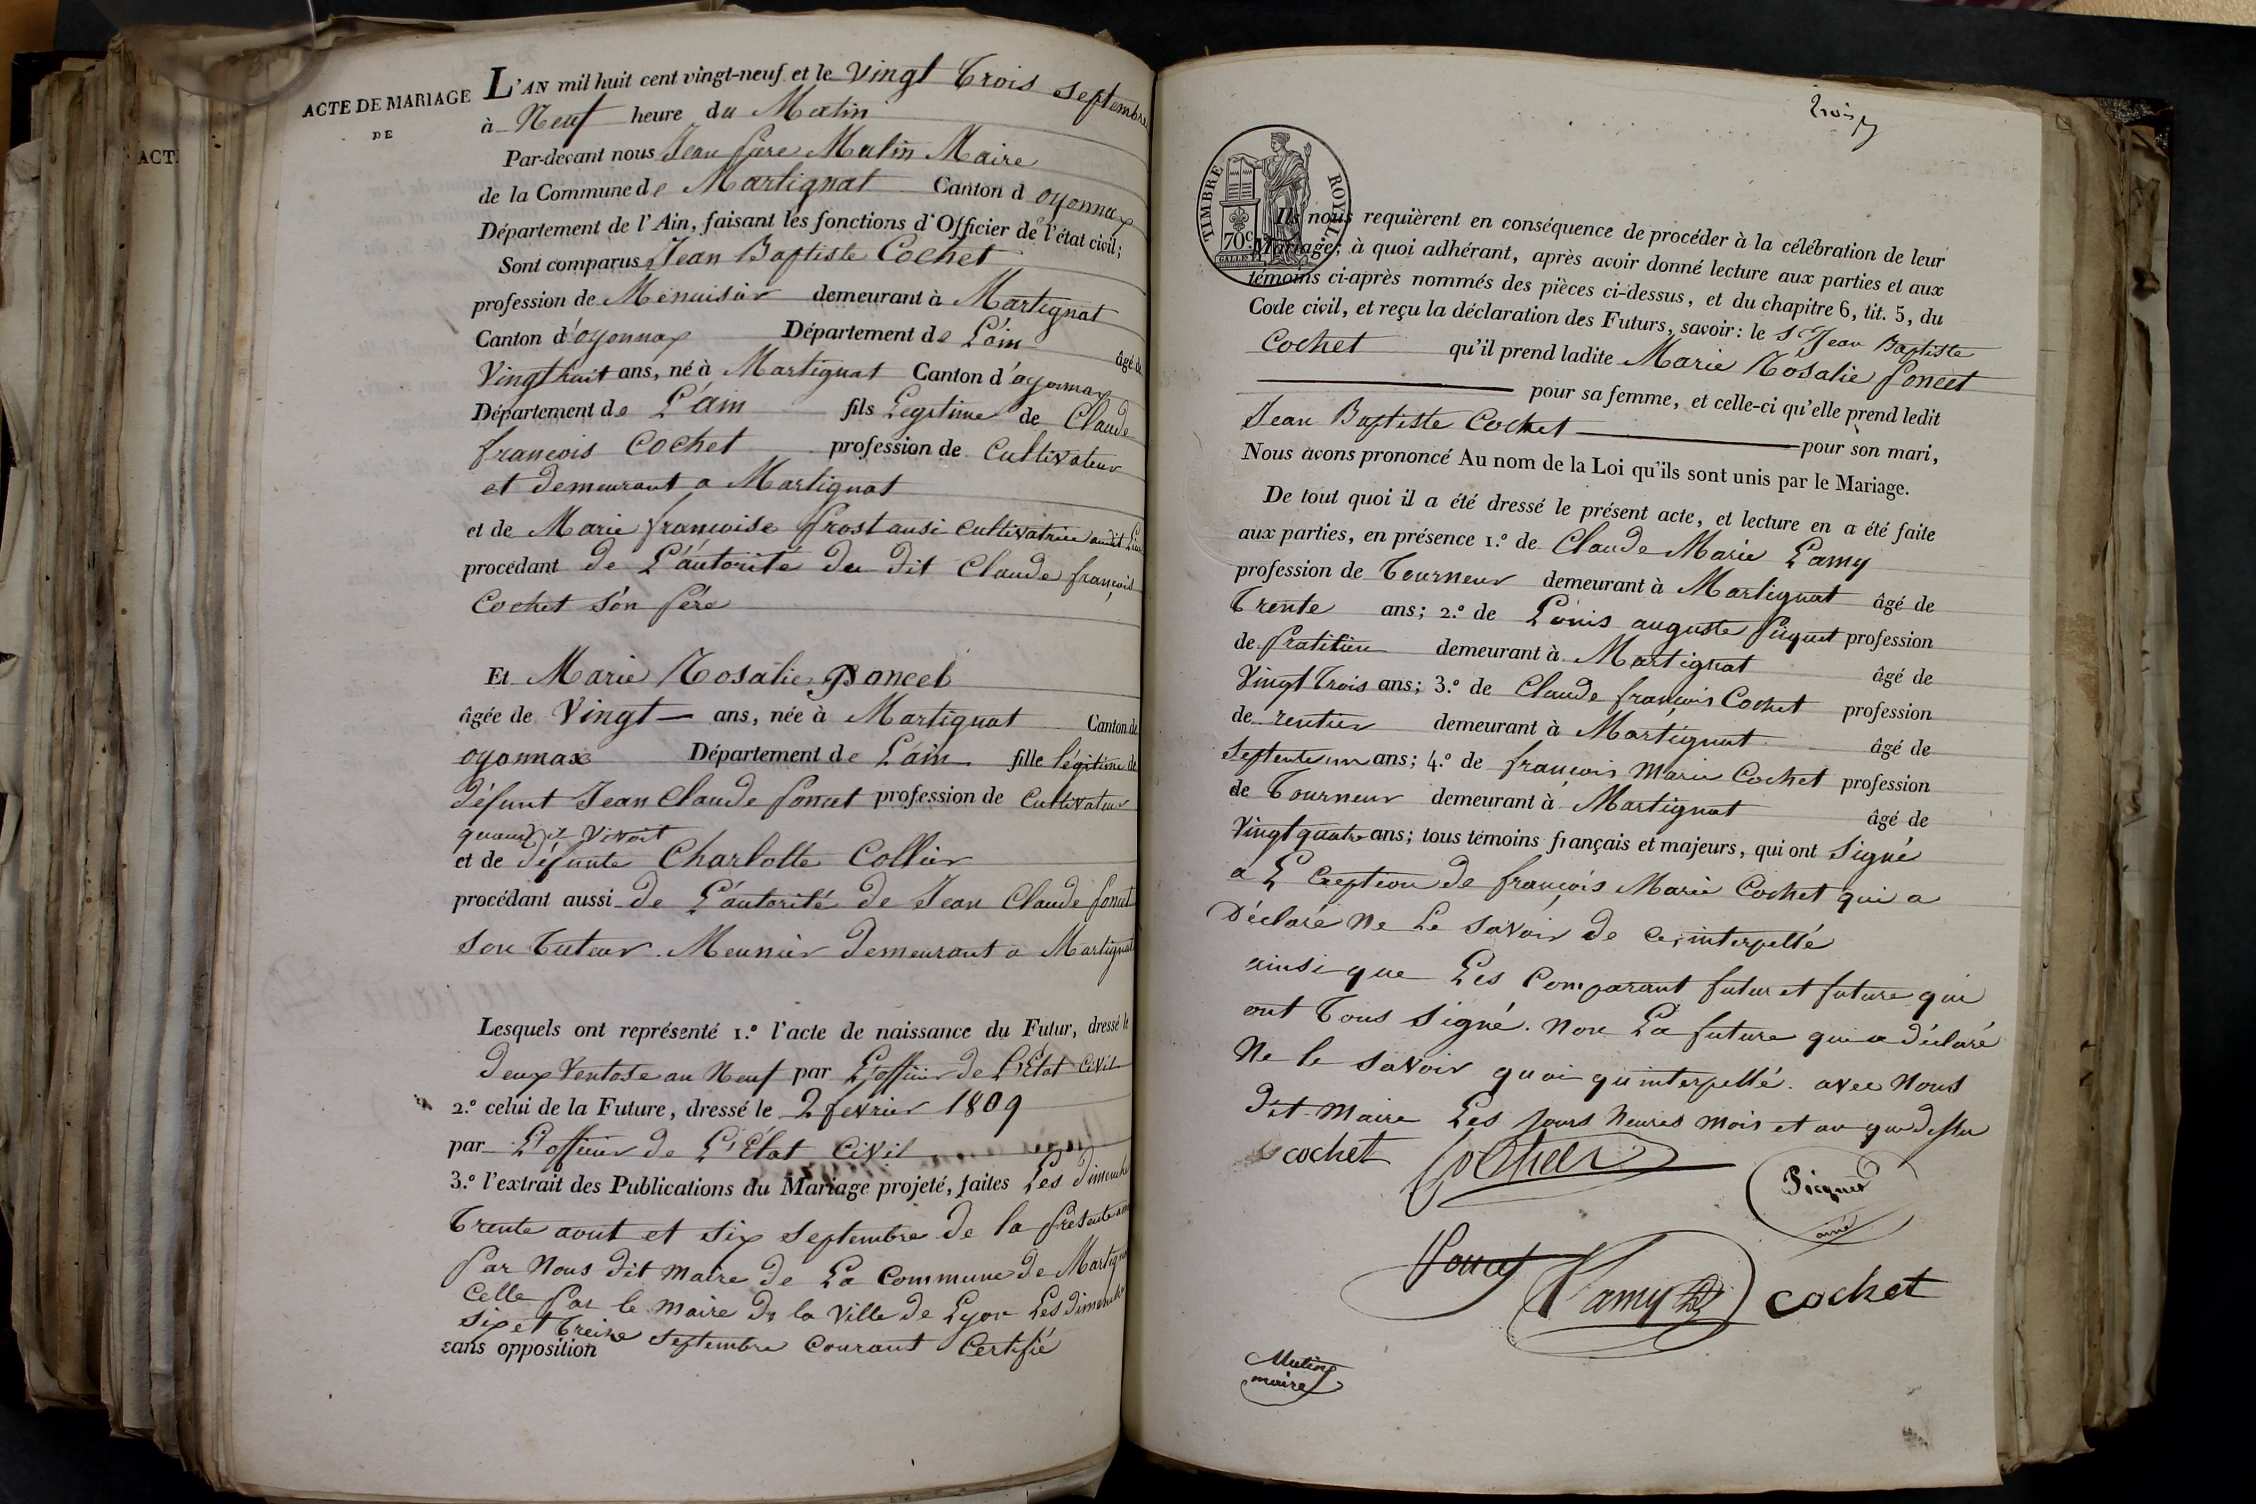 ACTE DE MARIAGE
DE
ACT
L'AN mil huit cent vingt-neuf et le vingt trois septembre
à Neuf heure du Matin
Par-devant nous Jean Mutin Maire
de la Commune de Martignat Canton d oyonnax
Département de l'Ain, faisant les fonctions d'Officier de l'état civil;
Sont comparus Jean Baptiste Cochet
profession de Menuisier demeurant à Martignat
Canton d'oyonnax Département de L'ain âgé de
Vingt huit ans, né à Martignat Canton d'oyonnax
Département de L'ain fils Legitime de Claude
françois Cochet profession de Cultivateur
et demeurant a Martignat
et de Marie françoise prost ausi cultivatrice audit Lieu
procédant de L'autorité du dit Claude françois
Cochet son père
Et Marie Rosalie Poncet
âgée de Vingt ans, née à Martignat Canton de
oyonnax Département de L'ain fille légitime de
défunt Jean Claude poncet profession de Cultivateur
quand il vivoit
et de défunte Charlotte Collier
procédant aussi de L'autorité de Jean Claude poncet
son tuteur Meunier demeurant a Martignat
Lesquels ont représenté 1.º l'acte de naissance du Futur, dressé le
deux Ventose an Neuf par L'officier de L'Etat Civil
2.º celui de la Future, dressé le 2 fevrier 1809
par L'officier de L'Etat Civil
3.º l'extrait des Publications du Mariage projeté, faites Les dimenche
trente aout et six septembre de la présente
par Nous dit maire de La Commune de Martignat
Celle par le maire de la Ville de Lyon Les dimenche
six et treize septembre courant Certifié
sans opposition
TIMBRE ROYAL
70c
Ils nous requièrent en conséquence de procéder à la célébration de leur
Mariage; à quoi adhérant, après avoir donné lecture aux parties et aux
témoins ci-après nommés des pièces ci-dessus, et du chapitre 6, tit. 5, du
Code civil, et reçu la déclaration des Futurs, savoir: le Sr Jean Baptiste
Cochet qu'il prend ladite Marie Rosalie poncet
pour sa femme, et celle-ci qu'elle prend ledit
Jean Baptiste Cochet pour son mari,
Nous avons prononcé Au nom de la Loi qu'ils sont unis par le Mariage.
De tout quoi il a été dressé le présent acte, et lecture en a été faite
aux parties, en présence 1.º de Claude Marie Lamy
profession de Tourneur demeurant à Martignat âgé de
Trente ans; 2.º de Louis auguste piquet profession
de pratitien demeurant à Martignat âgé de
Vingt trois ans; 3.º de Claude françois Cochet profession
de rentier demeurant à Martignat âgé de
septente un ans; 4.º de françois Marie Cochet profession
de Tourneur demeurant à Martignat âgé de
Vingt quatre ans; tous témoins français et majeurs, qui ont signé
a L'exeption de françois Marie Cochet qui a
Déclaré ne Le savoir de ce interpellé
ainsi que Les Comparant futur et future qui
ont tous signé. Non La future qui a déclaré
Ne le savoir quoi qu interpellé. avec Nous
dit Maire Les jours heures mois et an que dessu
cochet Cochet
Picquet
ainé
Poncet Lamy cochet
Mutin
maire